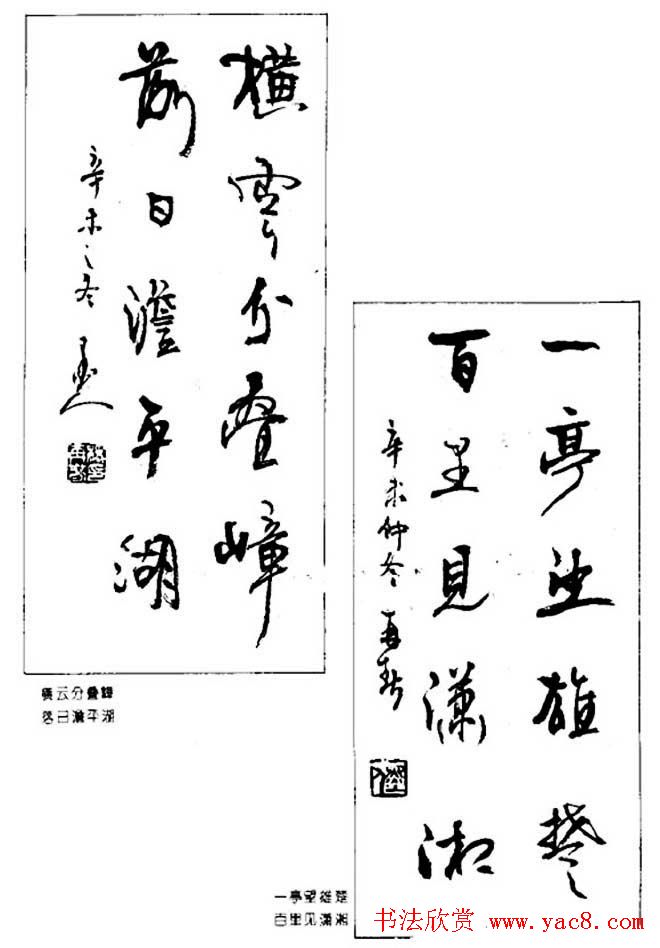 橫雲分疊嶂
落日澹平湖
辛未之冬
横云分叠嶂
落日澹平湖
一亭望雄楚
百里見瀟湘
辛未仲冬
一亭望雄楚
百里见潇湘
书法欣赏 www.yac8.com